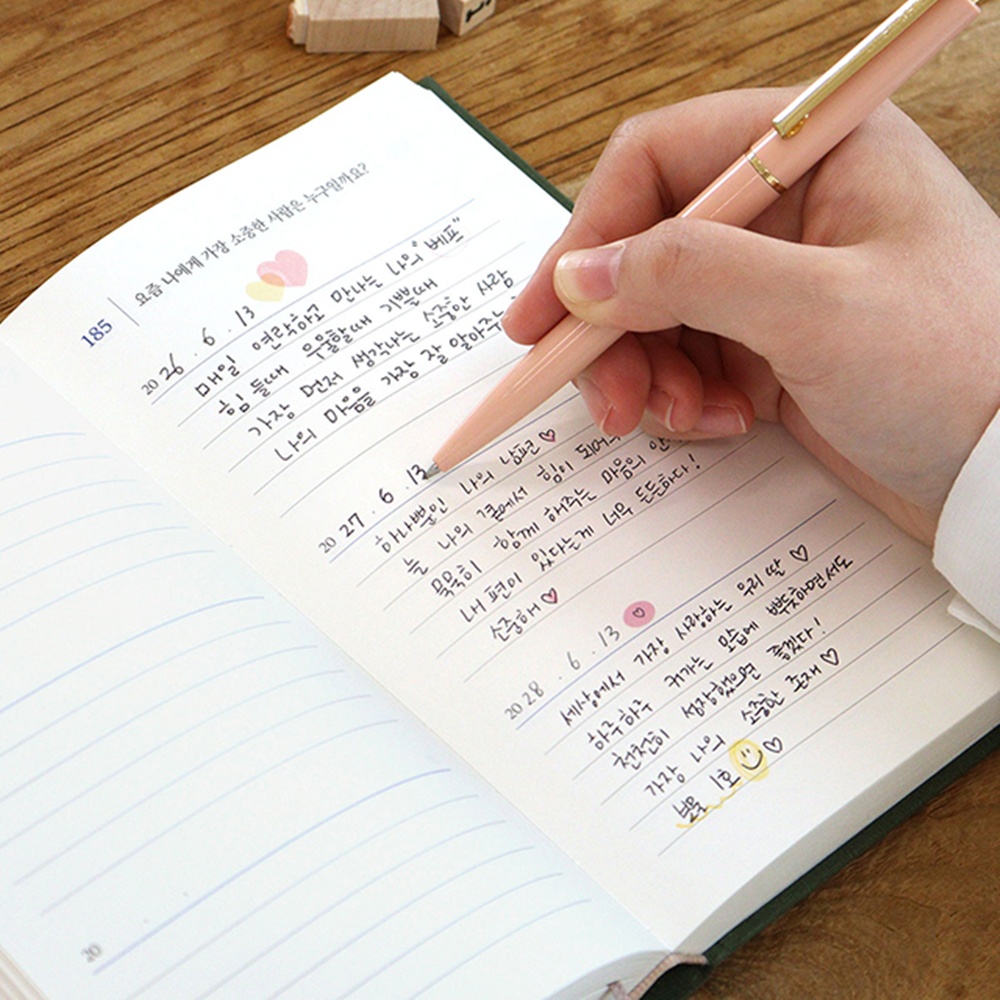 185
요즘 나에게 가장 소중한 사람은 누구일까요?
2026 . 6 . 13
매일 연락하고 만나는 나의 "베프"
힘들때 우울할때 기쁠때
가장 먼저 생각나는 소중한 사람
나의 마음을 가장 잘 알아주는
2027 . 6 . 13
하나뿐인 나의 남편♡
늘 나의 곁에서 힘이 되어주
묵묵히 함께 해주는 마음의 안
내 편이 있다는게 너무 든든하다!
소중해♡
2028 . 6 . 13 ♡
세상에서 가장 사랑하는 우리 딸 ♡
하루하루 커가는 모습에 뿌듯하면서도
천천히 성장했으면 좋겠다!
가장 나의 소중한 존재 ♡
보물 1호 ♡
20